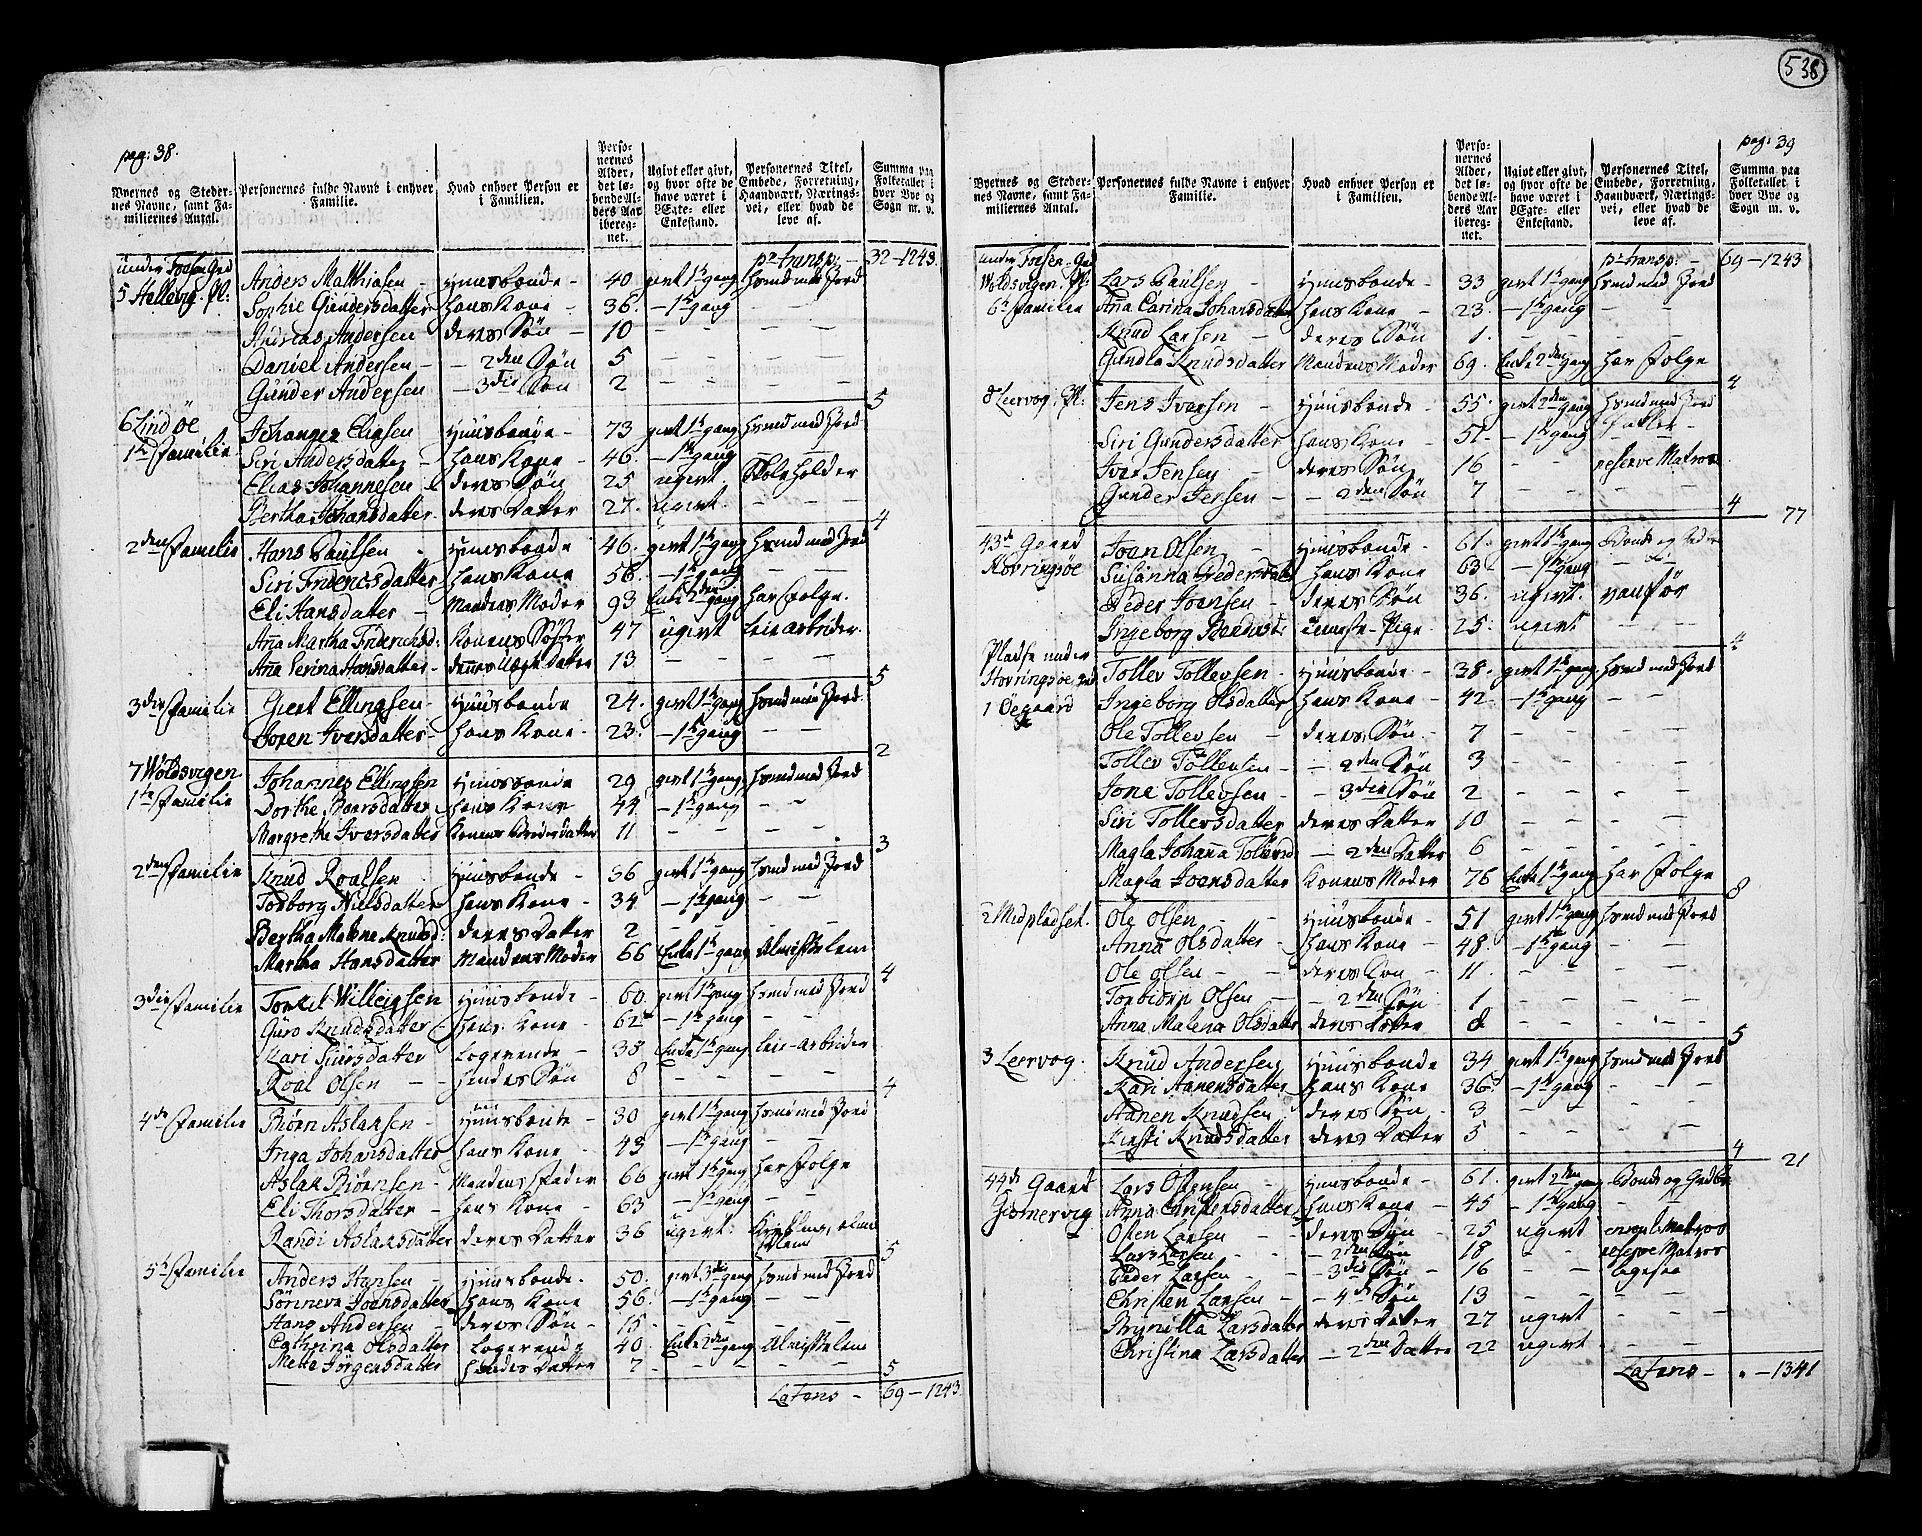 538
pag: 38.
Byernes og Stedernes Navne, samt Familiernes Antal. | Personernes fulde Navne i enhver Familie. | Hvad enhver Person er i Familien. | Personernes Alder, det løbende Alders Aar iberegnet. | Ugivt eller givt, og hvor ofte de have været i Ægte- eller Enkestand. | Personernes Titel, Embede, Forretning, Haandværk, Næringsvei, eller hvad de leve af. | Summa paa Folketallet i hver Bye og Sogn m. v.
pr transp: – 32 – 1243.
under Fossen Grd
5 Hellevig. Pl: Anders Mathiasen – Huusbonde – 40. givt 1te gang Huusmd med Jord
Sophie Gundersdatter hans Kone – 36. – 1te gang –
Andreas Andersen deres Søn – 10 – – –
Daniel Andersen – – 2den Søn 5 – – –
Gunder Andersen – 3die Søn 2 – – –
5
6 Lindöe
1te Familie Johannes Eliasen Huusbonde – 73 givt 1te gang Huusmd med Jord
Siri Andersdatter – hans Kone – 46. – 1te gang –
Elias Johannesen – deres Søn 25 ugivt Skoleholder
Bertha Johansdatter. deres Datter 27. ugivt. – –
4
2den Familie Hans Paulsen – Huusbonde 46. givt 1te gang Huusmd med Jord
Siri Friderichsdatter hans Kone 56. – 1te gang – –
Eli Hansdatter – Mandens Moder 93 Enke 2den gang har Folge.
Ana Martha Friderichsd: Konens Søster 47 ugivt leie arbeider.
Ane Serina Hansdatter – dennes Uægte Datter 13 – – –
5
3die Familie Giert Ellingsen – Huusbonde 24. givt 1te gang Huusmd med Jord
Joren Iversdatter – hans Kone – 23. – 1te gang – –
2
7 Woldsvigen
1te Familie Johannes Ellingsen Huusbonde 29 givt 1te gang Huusmd med Jord
Dorthe Baarsdatter hans Kone 44. – 1te gang – –
Margrethe Iversdatter Konens Broderdatter 11 – – –
3
2den Familie Knud Roalsen Huusbonde – 36 givt 1te gang Huusmd med Jord
Torborg Nielsdatter hans Kone – 34 – 1te gang – –
Bertha Malene Knudsd: deres Datter 2 – – –
Martha Hansdatter Mandens Moder 66 Enke 1te gang Almisselem
4
3die Familie Torkil Willeigsen Huusbonde – 60. givt 1te gang Huusmd med Jord
Guro Knudsdatter – hans Kone – 62 – 1te gang – –
Kari Siursdatter Logerende – 38 Enke 1te gang leie-arbeider
Roal Olsen – – hendes Søn 8 – – –
4
4de Familie Biørn Aslaksen – Huusbonde – 30 givt 1te gang Huusmd med Jord
Inga Johansdatter hans Kone – 43 – 1te gang – –
Aslak Biørnsen – Mandens Fader 66 givt 1te gang har Folge
Eli Thorsdatter – hans Kone – 63 – 1te gang –
Randi Aslaksdatter deres Datter 36 ugivt. Krøbling, almisselem
5
5te Familie Anders Hansen – Huusbonde – 50. givt 3die gang Huusmd med Jord
Sönneva Joensdatter hans Kone 56. – 1te gang – –
Hans Andersen – deres Søn – 15 – – –
Cathrina Olsdatter Logerende 40. Enke 2den gang Almisselem
Mette Jörgensdatter hendes Datter 7 – – –
5
Latens – 69 – 1243
pag: 39
Byernes og Stedernes Navne, samt Familiernes Antal. | Personernes fulde Navne i enhver Familie. | Hvad enhver Person er i Familien. | Personernes Alder, det løbende Alders Aar iberegnet. | Ugivt eller givt, og hvor ofte de have været i Ægte- eller Enkestand. | Personernes Titel, Embede, Forretning, Haandværk, Næringsvei, eller hvad de leve af. | Summa paa Folketallet i hver Bye og Sogn m. v.
pr transp: – 69 – 1243
under Fossen Grd
Woldsvigen. Pl:
6te Familie Lars Paulsen – Huusbonde – 33 givt 1te gang Huusmd med Jord
Ana Carina Johansdatter hans Kone – 23. – 1te gang –
Knud Larsen – deres Søn 1. – – –
Gundla Knudsdatter Mandens Moder 69. Enke 2den gang har Folge
4
8 Leervog. Pl: Jens Iversen – Huusbonde – 55. givt 2den gang Huusmd med Jord
Siri Gundersdatter hans Kone – 51. – 1te gang
Iver Jensen – deres Søn 16 – – reserve Matros
Gunder Jensen – – 2den Søn 7 – – –
4 77
43de Gaard
Hovringsøe Joen Olsen – Huusbonde – 61. givt 1te gang Bonde og
Susanna Pedersdatter hans Kone 63 – 1te gang –
Peder Joensen – deres Søn 36. ugivt. vanför
Ingeborg tieneste Pige 25. ugivt – –
4
Pladse under
Hovringsøe
1 Öegaard Tollev Tollevsen – Huusbonde – 38. givt 1te gang Huusmd med Jord
Ingeborg Olsdatter hans Kone – 42. – 1te gang – –
Ole Tollevsen – deres Søn 7 – – –
Tollev Tollevsen – – 2den Søn 3 – – –
Jona Tollevsen – – 3die Søn 2 – – –
Siri Tollevsdatter deres Datter 10 – – –
Magla Johana Tollevsd – 2den Datter 6 – – –
Magla Joensdatter Konens Moder 76 Enke 1te gang har Folge
8
2 Midpladset. Ole Olsen – – Huusbonde – 51. givt 1te gang Huusmd med Jord
Anna Olsdatter – hans Kone – 48 – 1te gang – –
Ole Olsen – – deres Søn – 11. – – –
Torbiörn Olsen – – 2den Søn 1 – – –
Anna Malena Olsdatter deres Datter 8 – – –
5
3 Leervog. Knud Andersen Huusbonde 34 givt 1te gang Huusmd med Jord
Kari Aanensdatter hans Kone 36 – 1te gang – –
Aanen Knudsen deres Søn – 3 – – –
Kirsti Knudsdatter deres Datter 5 – – –
4 21
44de Gaard
Giomervig Lars Ostensen – Huusbonde – 61. givt 2den gang Bonde og
Anna Christensdatter hans Kone – 45 – 1te gang –
Osten Larsen – deres Søn – 25 ugivt enroll. Matros
Lars Larsen – – 2den Søn 18 – – reserve Matros
Peder Larsen – – 3die Søn – 16 – – ligesaa
Christen Larsen – – 4de Søn 13 – – –
Brynilla Larsdatter deres Datter 27 ugivt – –
Christina Larsdatter – 2den Datter 22 ugivt – –
Latens – „ – 1341